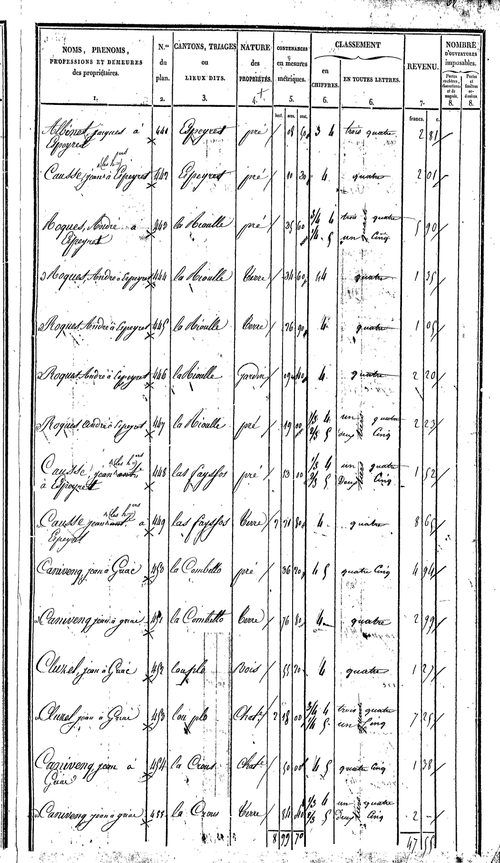 NOMS, PRENOMS,
PROFESSIONS ET DEMEURES
des propriétaires.
1.
N.os
du
plan.
2.
CANTONS, TRIAGES
ou
LIEUX DITS.
3.
NATURE
des
PROPRIÉTÉS.
4.
CONTENANCES
en mesures
métriques.
5.
CLASSEMENT
en
CHIFFRES.
6.
EN TOUTES LETTRES.
6.
REVENU.
7.
NOMBRE
D'OUVERTURES
imposables.
8.
8.
hect. ares. cen.
francs. c.
Albinet jacques à 441 Espeyret pré 3 4 trois quatre 2 81
Espeyret
Causse, jean à Espeyret 442 Espeyret pré 10 4 quatre 2 01
Roques, André à 443 la Rivalle pré 35 60 3/4 4 trois quatre 5 90
Espeyret 1/4 5 un cinq
Roques André à Espeyret 444 la Rivalle terre 34 60 4 quatre 1 35
Roques André à Espeyret 445 la Rivalle terre 26 90 4 quatre 1 05
Roques André à Espeyret 446 la Rivalle 4 quatre 2 20
Roques André à Espeyret 447 la Rivalle pré 19 00 1/3 4 un quatre 2 23
2/3 5 deux tiers cinq
Causse, jean 448 las fayssos pré 13 10 1/3 4 un quatre 1 52
à Espeyret 2/3 5 deux tiers cinq
Causse jean à 449 las fayssos terre 2 21 80 4 quatre 8 65
Caniveng jean à Griac 450 la Combetto pré 36 20 4 5 quatre cinq 4 94
Caniveng jean à griac 451 la Combetto terre 76 80 4 quatre 2 99
Cluzel jean à Griac 452 lou plo Bois 55 20 4 quatre 1 27
Cluzel jean à Griac 453 lou plo Chat. 2 18 00 3/4 4 trois quatre 7 25
1/4 5 un cinq
Caniveng jean à 454 la Crous Chat. 50 00 4 5 quatre cinq 1 38
Griac
Caniveng jean à griac 455 la Crous terre 1/3 4 un quatre 2 -
2/3 5 deux tiers cinq
8 99 70 47 55